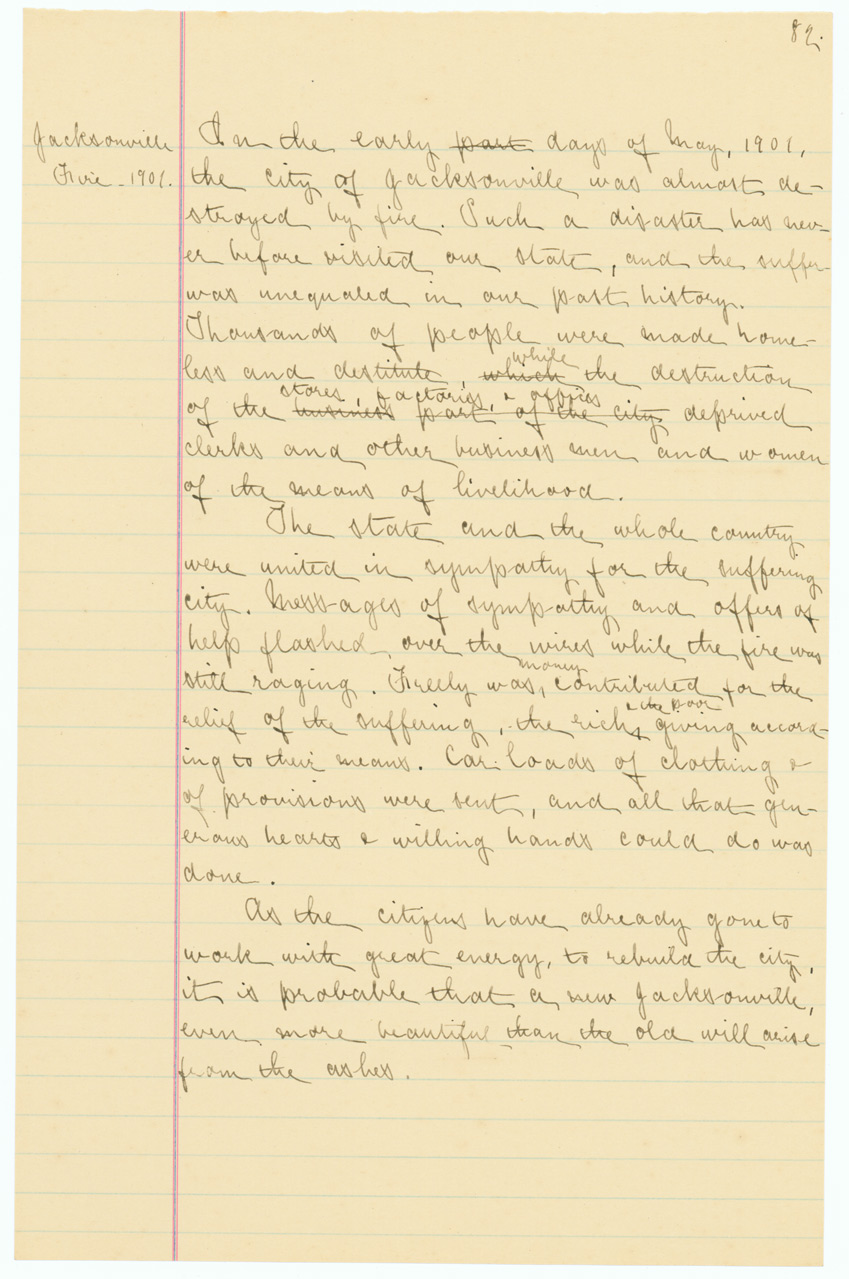 82.
Jacksonville
Fire - 1901.
In the early part days of May, 1901,
the city of Jacksonville was almost de-
stroyed by fire. Such a disaster has nev-
er before visited our state, and the suffer
was unequaled in our past history.
Thousands of people were made home-
while
less and destitute, which the destruction
stores, factories, & offices
of the business part of the city deprived
clerks and other business men and women
of the means of livelihood.
The state and the whole country
were united in sympathy for the suffering
city. Mess-ages of sympathy and offers of
help flashed over the wires while the fire was
money
still raging. Freely was contributed for the
& the poor
relief of the suffering, the rich giving accord-
ing to their means. Car-loads of clothing &
of provisions were sent, and all that gen-
erous hearts & willing hands could do was
done.
As the citizens have already gone to
work with great energy, to rebuild the city,
it is probable that a new Jacksonville,
even more beautiful than the old will arise
from the ashes.